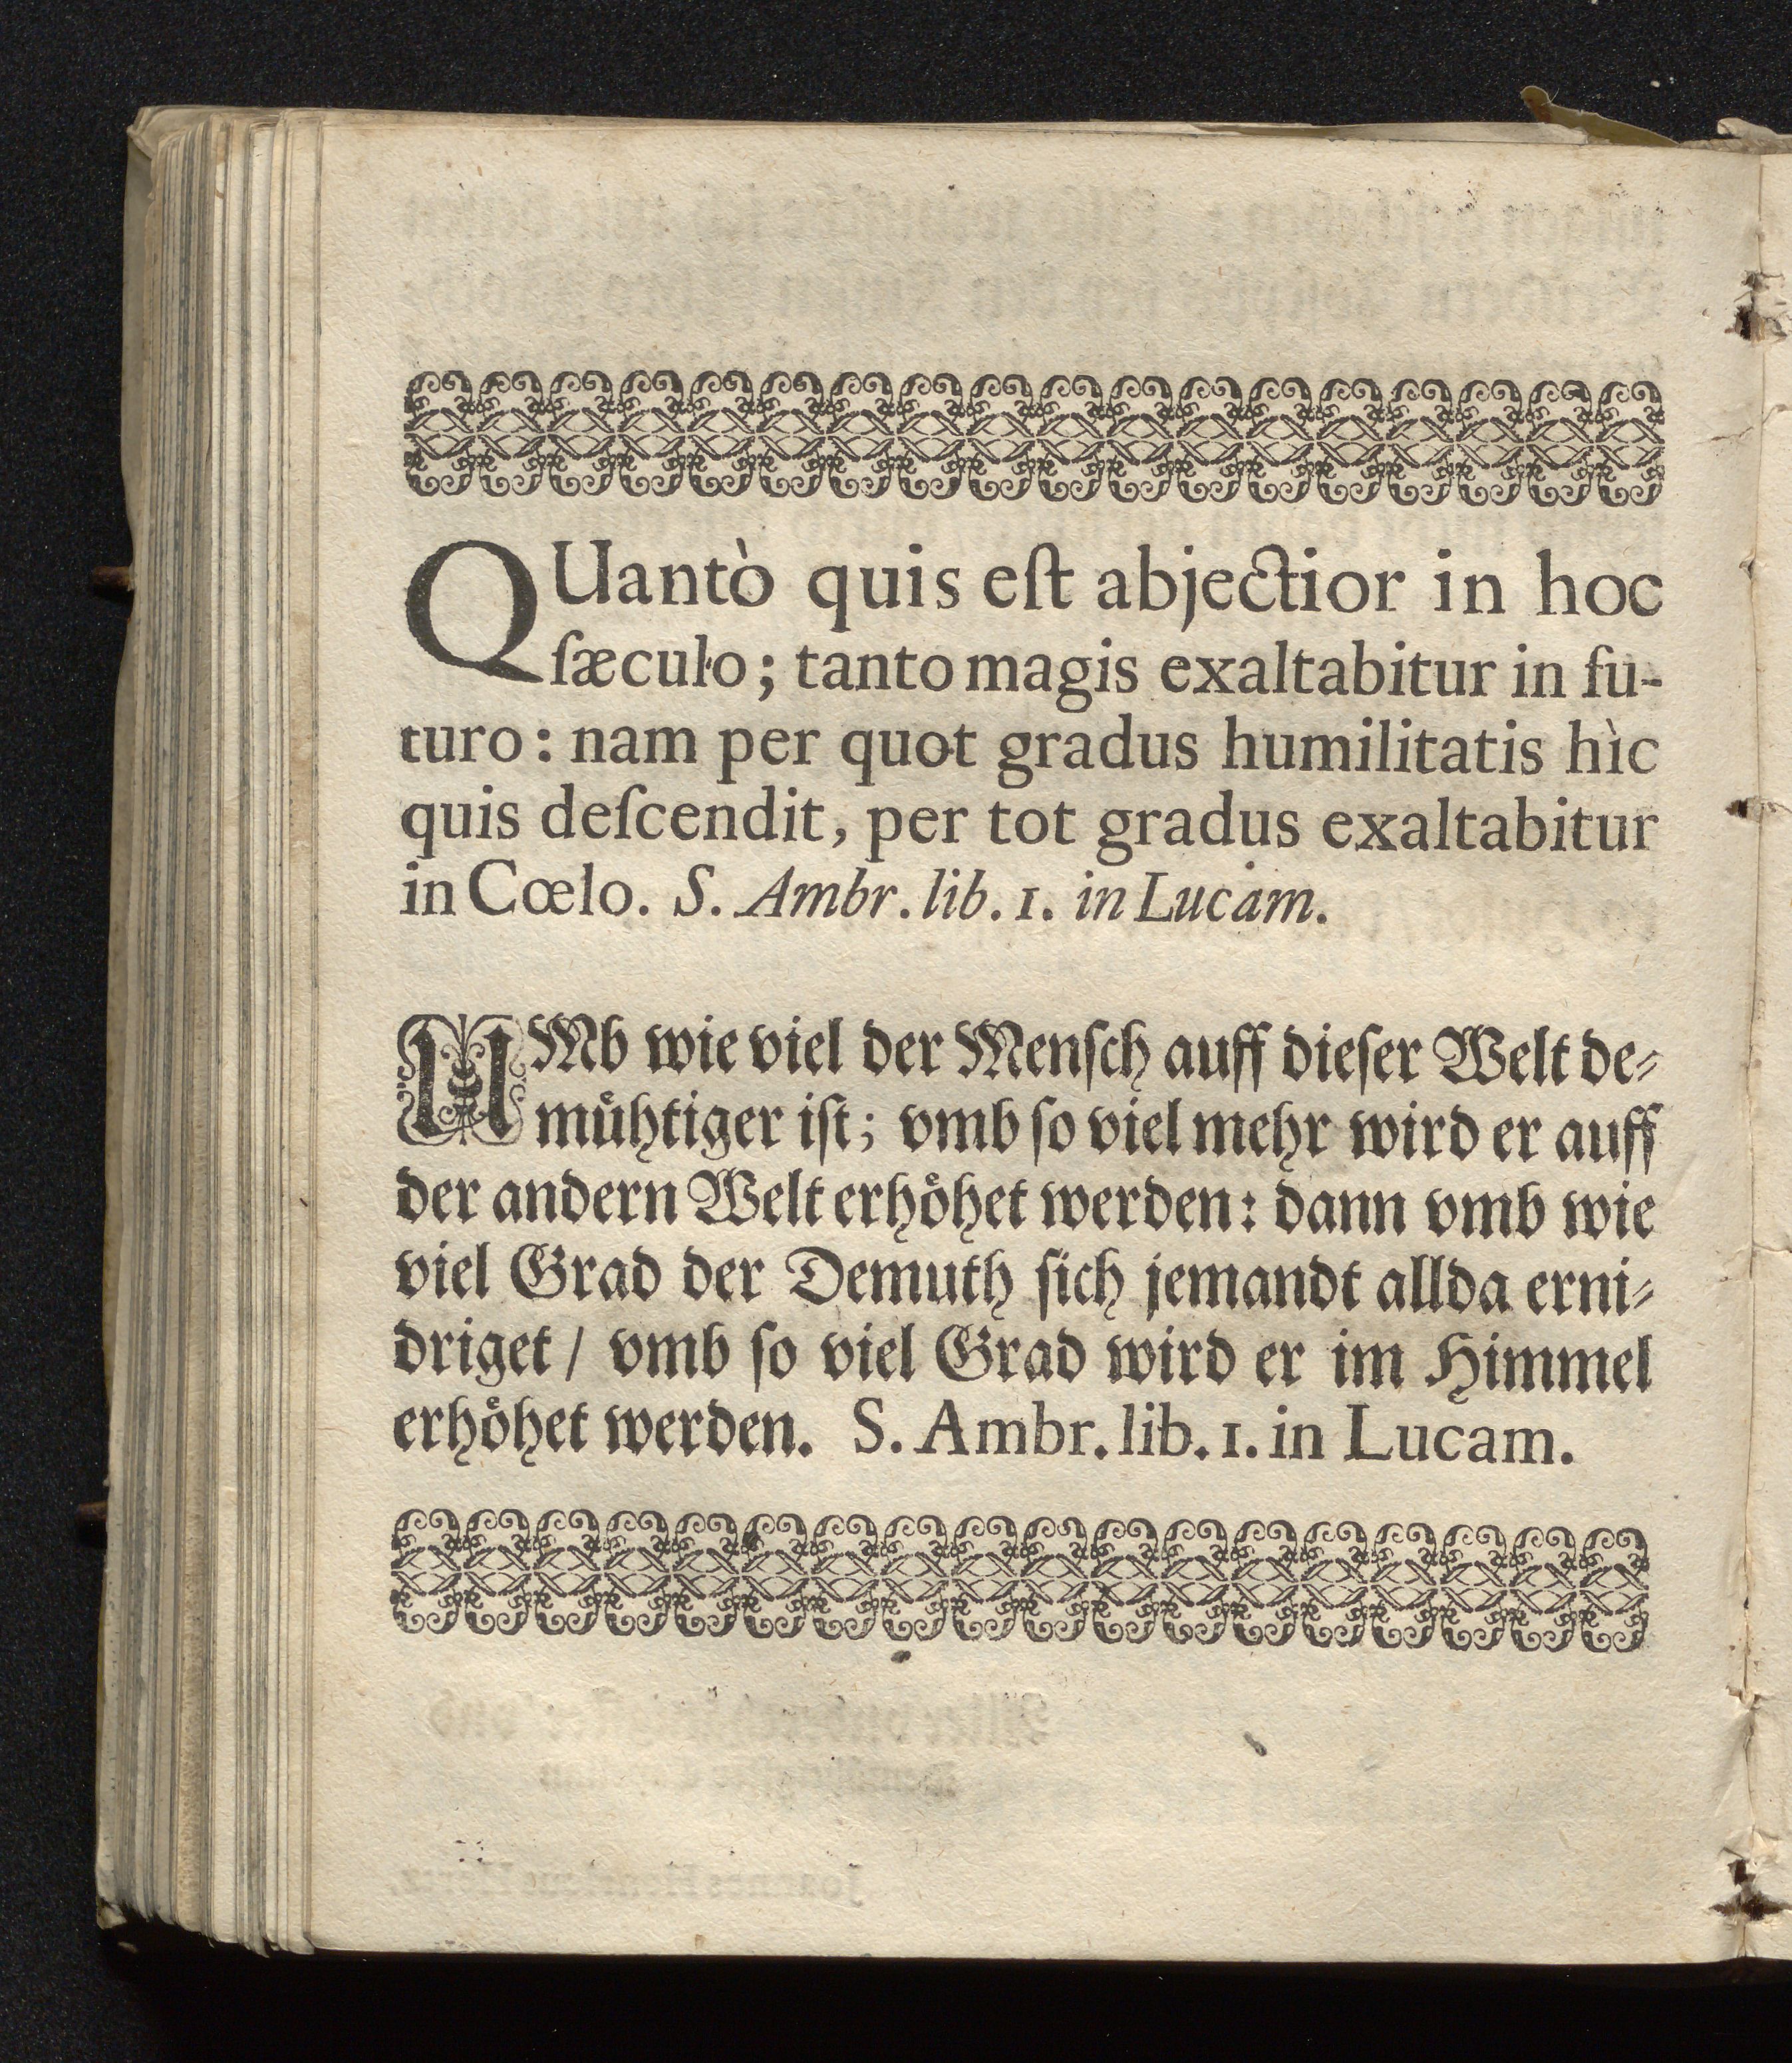 QUantò quis eſt abjectior in hoc
ſæculo; tanto magis exaltabitur in fu-
turo: nam per quot gradus humilitatis hìc
quis deſcendit, per tot gradus exaltabitur
in Cœlo. S. Ambr. lib. 1. in Lucam.
UMb wie viel der Menſch auff dieſer Welt de⸗
muͤhtiger iſt; vmb ſo viel mehr wird er auff
der andern Welt erhoͤhet werden: dann vmb wie
viel Grad der Demuth ſich jemandt allda erni⸗
driget / vmb ſo viel Grad wird er im Himmel
erhoͤhet werden. S. Ambr. lib. 1. in Lucam.